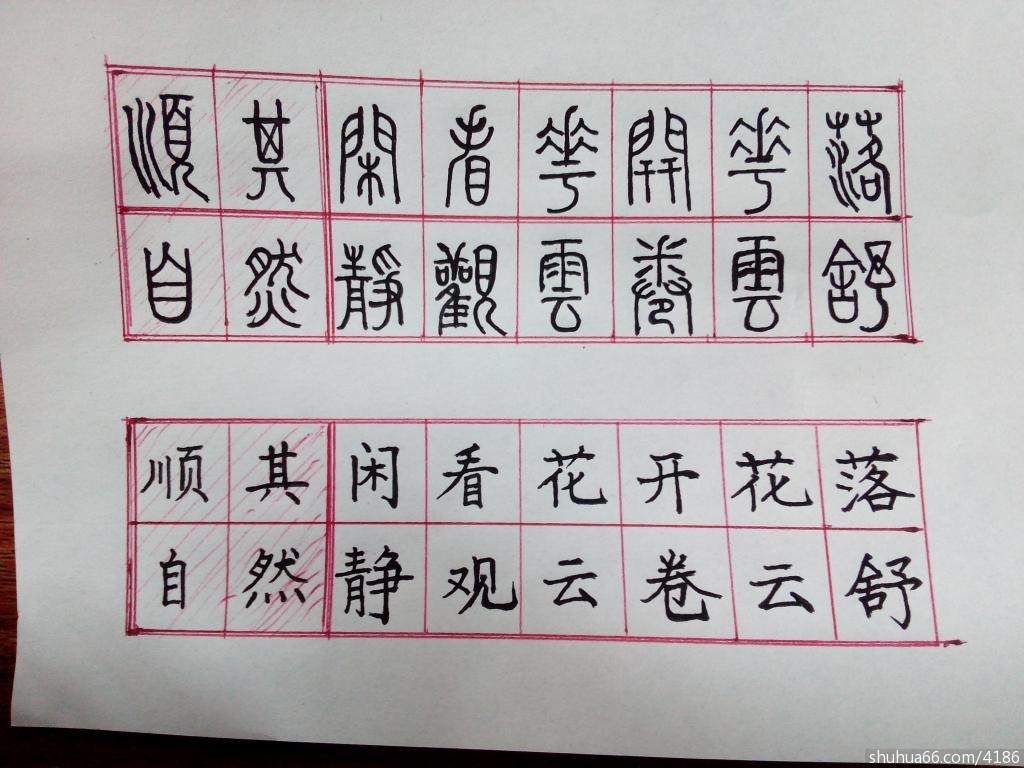 順其閑看華開華落
自然静觀雲卷雲舒
顺其闲看花开花落
自然静观云卷云舒
shuhua66.com/4186